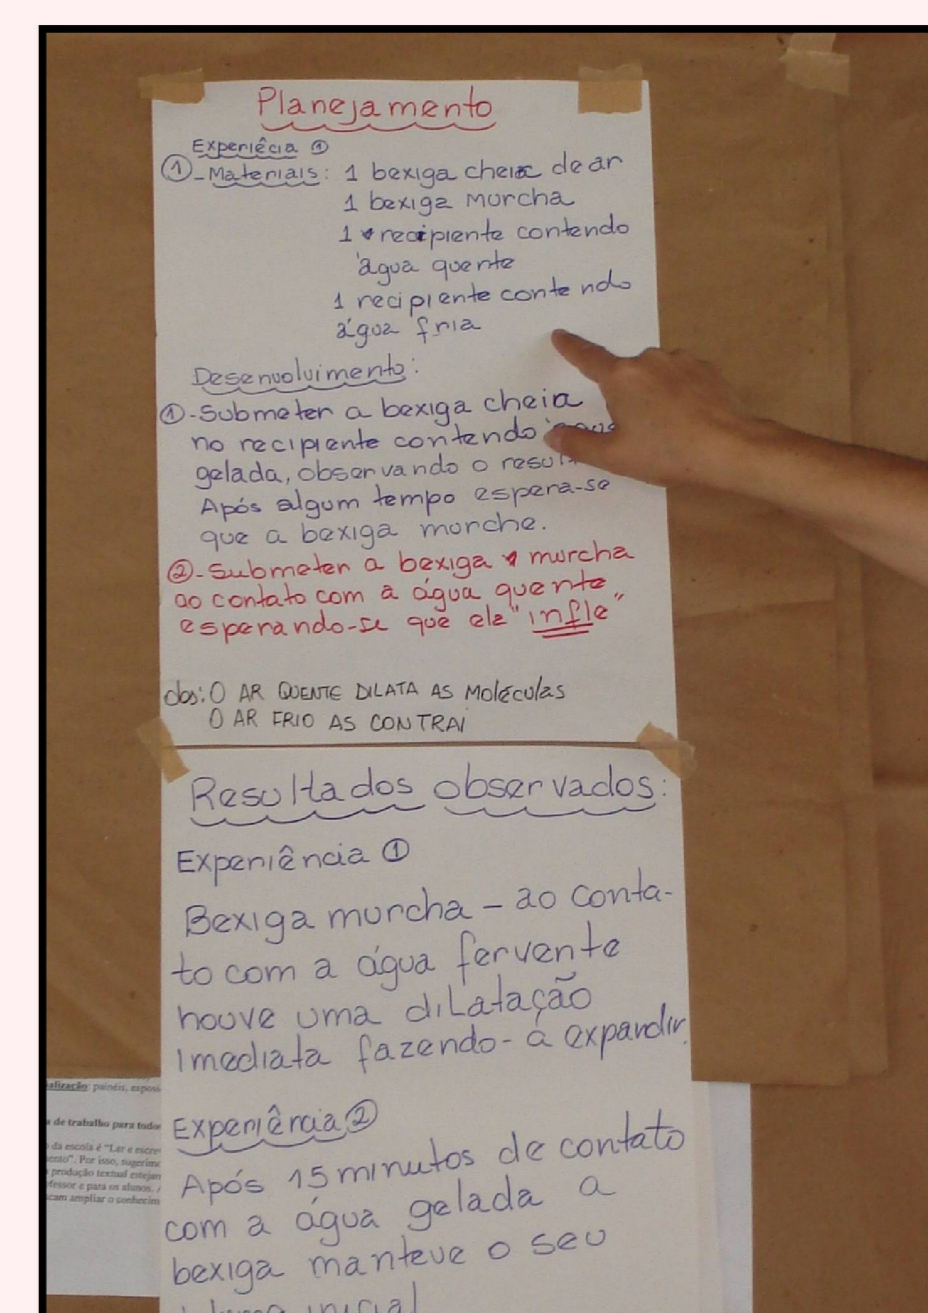 Planejamento
Experiêcia ①
①-Materiais: 1 bexiga cheia de ar
1 bexiga murcha
1 recipiente contendo
água quente
1 recipiente contendo
água fria
Desenvolvimento:
①-Submeter a bexiga cheia
no recipiente contendo
gelada, observando o
Após algum tempo espera-se
que a bexiga murche.
②-Submeter a bexiga murcha
ao contato com a água quente
esperando-se que ela "infle"
obs: O AR QUENTE DILATA AS MOLéCULAS
O AR FRIO AS CONTRAI
Resultados observados:
Experiência ①
Bexiga murcha - ao conta-
to com a água fervente
houve uma dilatação
imediata fazendo-a expandir.
Experiência ②
Após 15 minutos de contato
com a água gelada a
bexiga manteve o seu
inicial
: painéis,
de trabalho para todos
da escola é "Ler e
. Por isso,
produção textual estejam
e para os alunos.
ampliar o